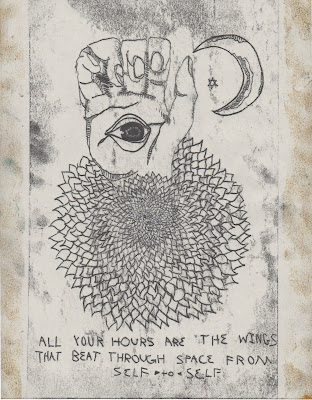 ALL YOUR HOURS ARE THE WINGS
THAT BEAT THROUGH SPACE FROM
SELF ▸to◂ SELF